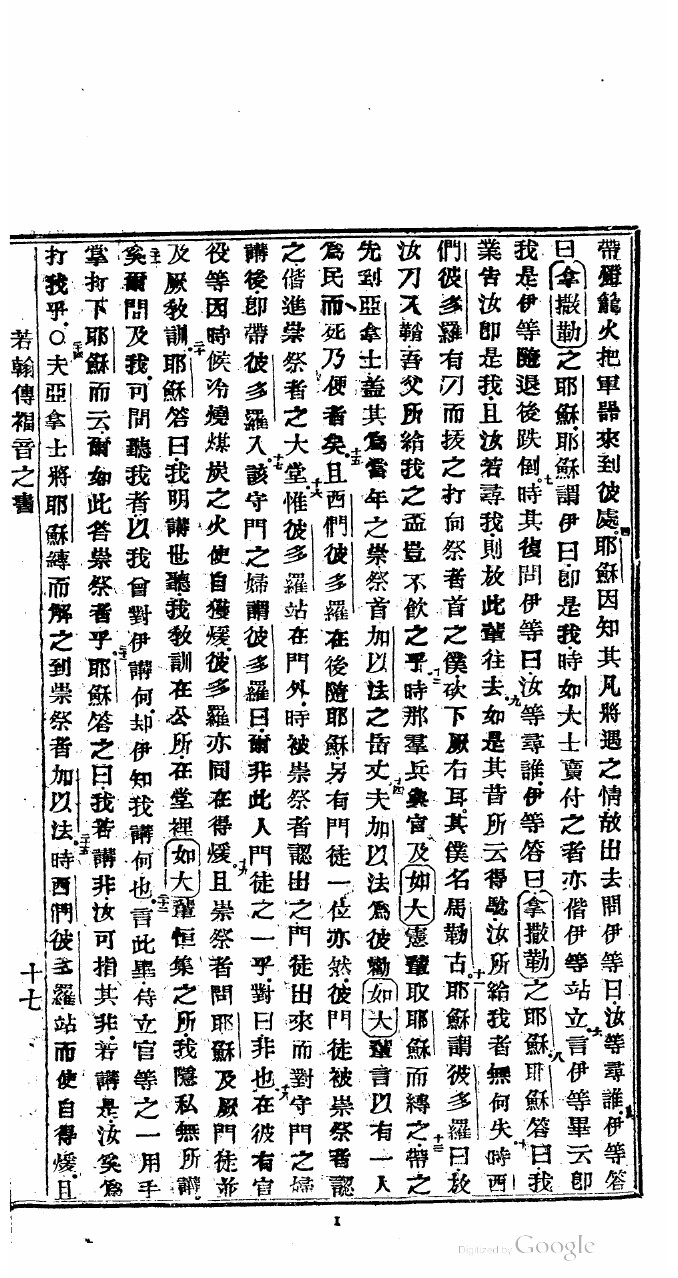 帶燈籠火把軍器來到彼處四耶穌因知其凡將遇之情故出去問伊等曰汝等尋誰五伊等答
曰拿撒勒之耶穌耶穌謂伊曰卽是我時如大士賣付之者亦偕伊等站立六言伊等畢云卽
我是伊等隨退後跌倒七時其復問伊等曰汝等尋誰伊等答曰拿撒勒之耶穌八耶穌答曰我
業告汝卽是我且汝若尋我則放此輩往去九如是其昔所云得騐汝所給我者無何失十時西
們彼多羅有刀而拔之打向祭者首之僕砍下厥右耳其僕名馬勒古十一耶穌謂彼多羅曰放
汝刀入鞘吾父所給我之盃豈不飲之乎十二時那羣兵與官及如大憲輩取耶穌而縛之十三帶之
先到亞拿士蓋其爲當年之崇祭首加以法之岳丈夫十四加以法爲彼勸如大輩言以有一人
爲民而死乃便者矣十五且西們彼多羅在後隨耶穌另有門徒一位亦然彼門徒被崇祭者認
之偕進崇祭者之大堂十六惟彼多羅站在門外時被崇祭者認出之門徒出來而對守門之婦
講後卽帶彼多羅入十七該守門之婦謂彼多羅曰爾非此人門徒之一乎對曰非也十八在彼有官
役等因時候冷燒煤炭之火使自獲煖彼多羅亦同在得煖十九且崇祭者問耶穌及厥門徒並
及厥教訓二十耶穌答曰我明講世聽我教訓在公所在堂裡如大輩恒集之所我隱私無所講
二十一矣爾問及我可問聽我者以我曾對伊講何却伊知我講何也二十二言此畢侍立官等之一用手
掌打下耶穌而云爾如此答崇祭者乎二十三耶穌答之曰我若講非汝可指其非若講是汝奚爲
打我乎二十四○夫亞拿士將耶穌縛而解之到崇祭者加以法二十五時西們彼多羅站而使自得煖且
若翰傳福音之書
十七
I
Digitized by Google